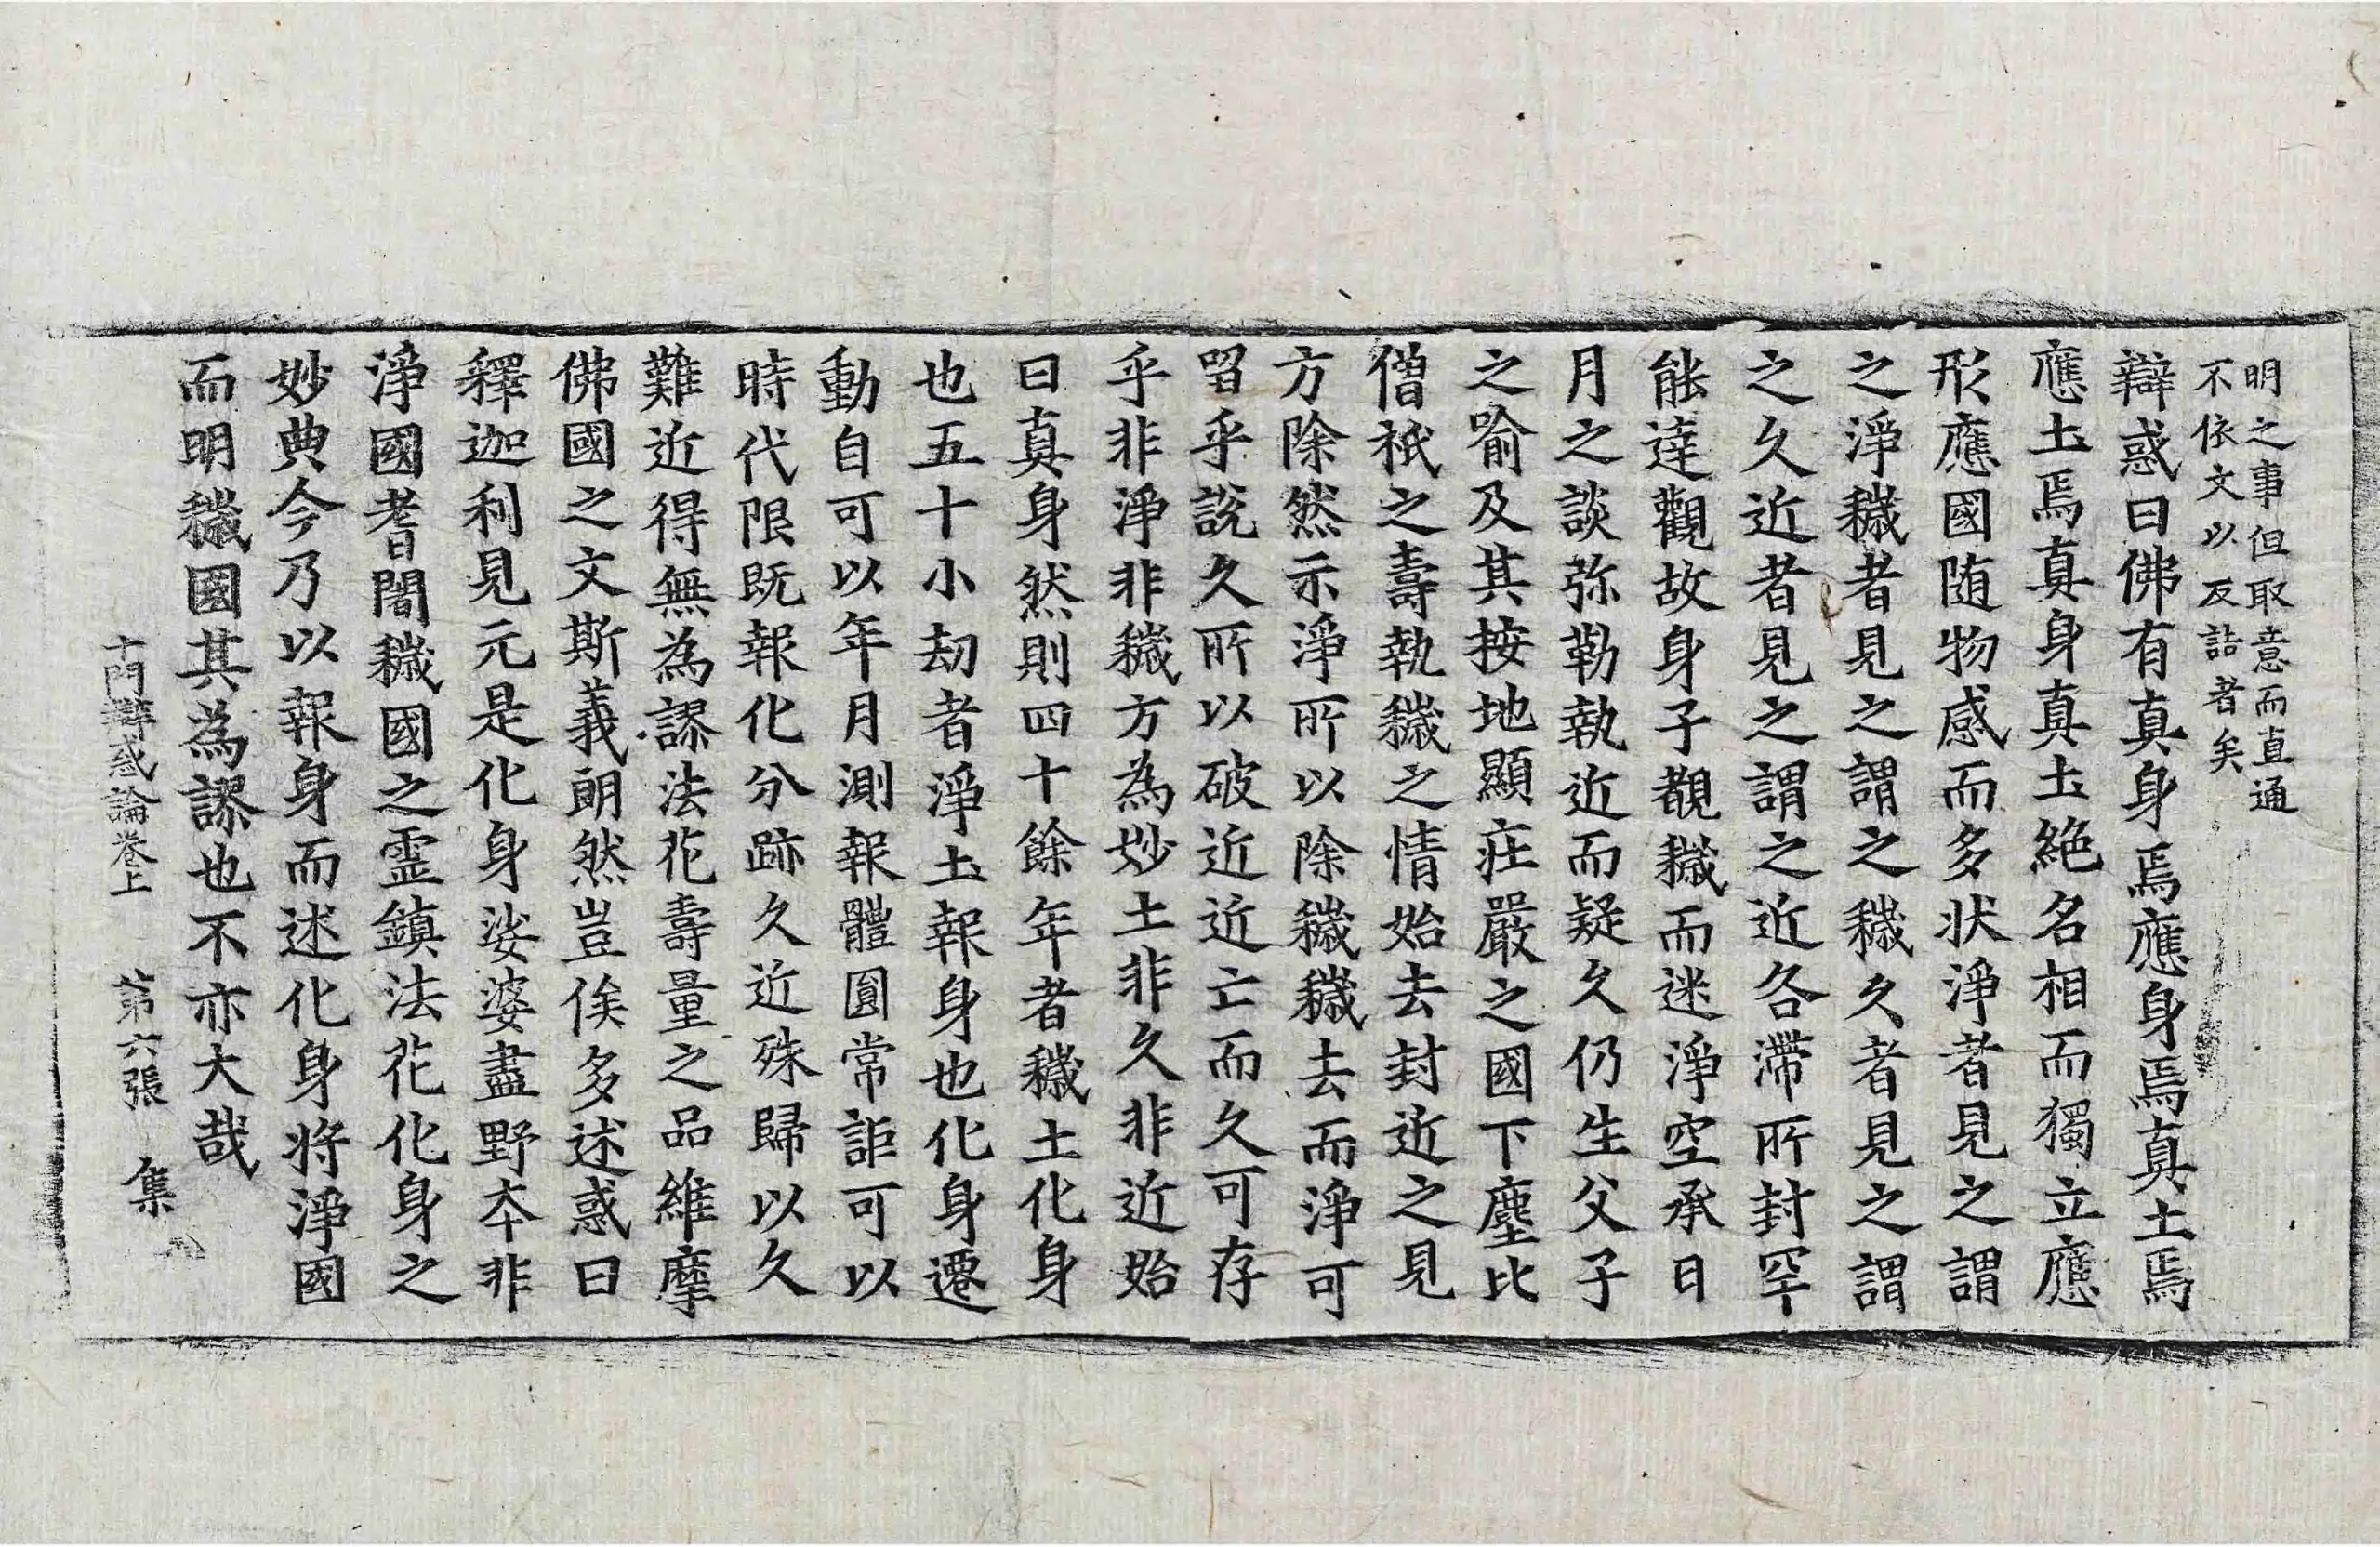 明之事但取意而直通
不依文以反詰者矣
辯惑曰佛有真身焉應身焉真土焉
應土焉真身真土絶名相而獨立應
形應國随物感而多状淨者見之謂
之淨穢者見之謂之穢久者見之謂
之久近者見之謂之近各滯所封罕
能達觀故身子覩穢而迷淨空承日
月之談弥勒執近而疑久仍生父子
之喻及其按地顯莊嚴之國下塵比
僧祇之壽執穢之情始去封近之見
方除然示淨所以除穢穢去而淨可
留乎說久所以破近近亡而久可存
乎非淨非穢方為妙土非久非近始
曰真身然則四十餘年者穢土化身
也五十小劫者淨土報身也化身遷
動自可以年月測報體圓常詎可以
時代限既報化分跡久近殊歸以久
難近得無為謬法花壽量之品維摩
佛國之文斯義朗然豈俟多述惑曰
釋迦利見元是化身娑婆盡野夲非
淨國耆闍穢國之霊鎮法花化身之
妙典今乃以報身而述化身将淨國
而明穢國其為謬也不亦大哉
十門辯惑論卷上　第六張　集